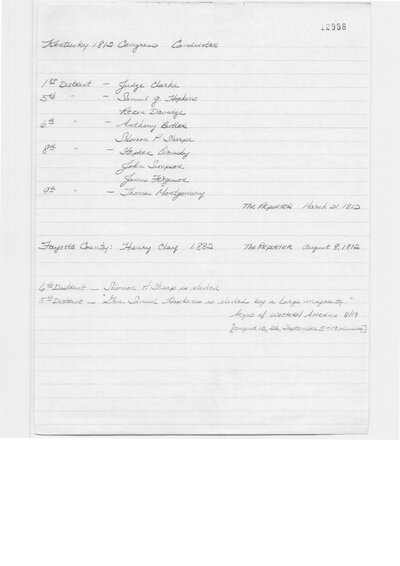 12958
Kentucky 1812 Congress Candidates
1st District - Judge Clarke
5th " - Samuel G. Hopkins
Rezin Davidge
6th " - Anthony Butler
Solomon P. Sharpe
8th " - Stephen Ormsby
John Simpson
James Ferguson
9th " - Thomas Montgomery
The Reporter March 21, 1812
Fayette County: Henry Clay 1,882 The Reporter August 8, 1812
6th District - Solomon P. Sharp is elected
5th District - "Gen. Samuel Hopkins is elected by a large majority."
Argus of Western America 8/19
[August 12, 26, September 5-19 missing]